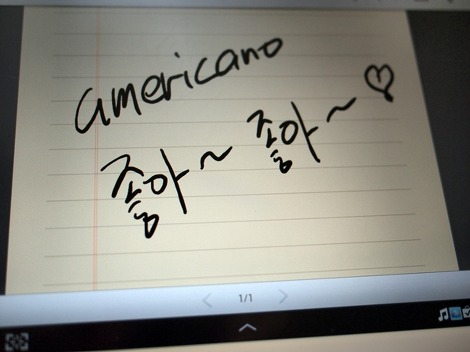 americano
좋아~ 좋아~♡
1/1